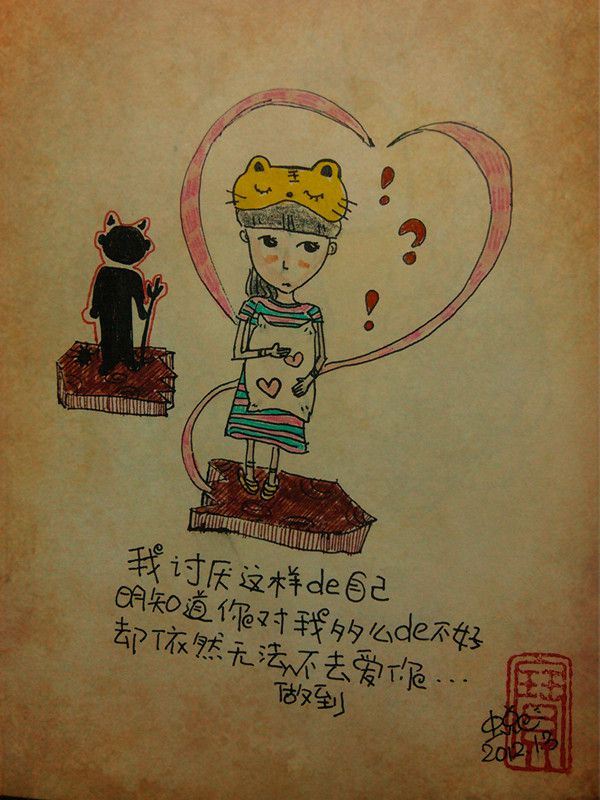 王
我讨厌这样de自己
明知道你对我多么de不好
却依然无法不去爱你...
做到
2012.1.3